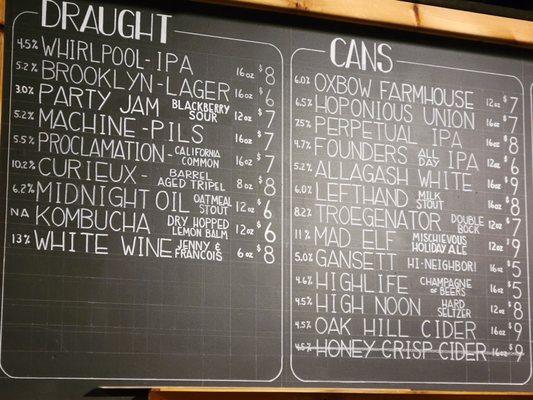 DRAUGHT
4.5% WHIRLPOOL-IPA 16oz $8
5.2% BROOKLYN-LAGER 16oz $6
3.0% PARTY JAM BLACKBERRY SOUR 12oz $7
5.2% MACHINE-PILS 16oz $7
5.5% PROCLAMATION- CALIFORNIA COMMON 16oz $7
10.2% CURIEUX- BARREL AGED TRIPEL 8oz $8
6.2% MIDNIGHT OIL OATMEAL STOUT 12oz $6
NA KOMBUCHA DRY HOPPED LEMON BALM 12oz $6
13% WHITE WINE JENNY & FRANCOIS 6oz $8
CANS
6.0% OXBOW FARMHOUSE 12oz $7
6.5% HOPONIOUS UNION 16oz $7
7.5% PERPETUAL IPA 16oz $8
4.7% FOUNDERS ALL DAY IPA 12oz $6
5.2% ALLAGASH WHITE 16oz $9
6.0% LEFTHAND MILK STOUT 16oz $8
8.2% TROEGENATOR DOUBLE BOCK 12oz $7
11% MAD ELF MISCHIEVOUS HOLIDAY ALE 12oz $9
5.0% GANSETT HI-NEIGHBOR! 16oz $5
4.6% HIGHLIFE CHAMPAGNE OF BEERS 16oz $5
4.5% HIGH NOON HARD SELTZER 12oz $8
4.5% OAK HILL CIDER 16oz $9
4.5% HONEY CRISP CIDER 16oz $9